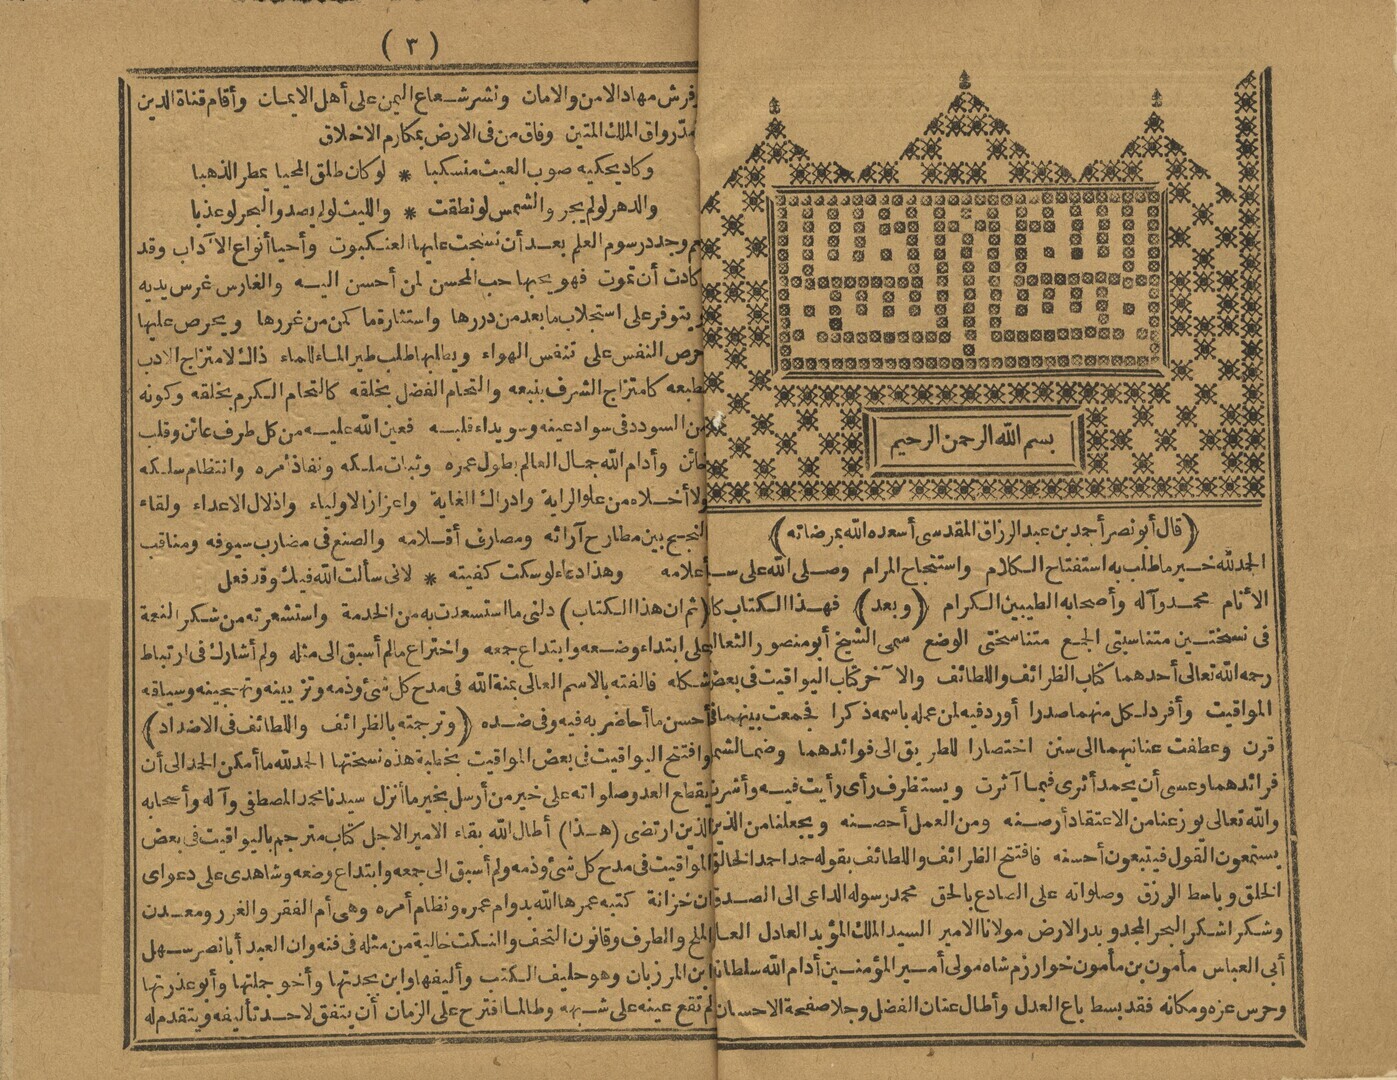 بسم الله الرحمن الرحيم
(قال أبو نصر أحمد بن عبد الرزاق المقدسى أسعده الله بمرضاته)
الحمد لله خير ما طلب به استفتاح الكلام واستنجاح المرام وصلى الله على
الأنام محمد وآله وأصحابه الطيبين الكرام (وبعد) فهذا الكتاب
فى نسختين متناسبتى الجمع متناسختى الوضع سمى الشيخ أبو منصور الثعالبى
رحمه الله تعالى أحدهما كتاب الظرائف واللطائف والآخر كتاب اليواقيت فى بعض
المواقيت وأفرد لكل منهما صدرا أورد فيه لمن عمله باسمه ذكرا فجمعت بينهما
قرن وعطفت عنانيهما الى سنن اختصارا للطريق الى فوائدهما وضما
فرائدهما وعسى أن يحمد أثرى فيما آثرت ويستظرف رأى رأيت فيه
والله تعالى يوزعنا من الاعتقاد أرصنه ومن العمل أحصنه ويجعلنا من الذين
يستمعون القول فيتبعون أحسنه فافتتح الظرائف واللطائف بقوله حمدا حمد الخالق
الخلق وباسط الرزق وصلواته على الصادع بالحق محمد رسوله الداعى الى الصدق
وشكرا شكر البحر المجد وبدر الارض مولانا الامير السيد الملك المؤيد العادل
أبى العباس مأمون بن مأمون خوارزم شاه مولى أمير المؤمنين أدام الله سلطانه
وحرس عزه ومكانه فقد بسط باع العدل وأطال عنان الفضل وجلا صفحة الاحسان
(٣)
وفرش مهاد الامن والامان ونشر شعاع اليمن على أهل الايمان وأقام قناة الدين
ومد رواق الملك المتين وفاق من فى الارض بمكارم الاخلاق
وكاد يحكيه صوب الغيث منسكبا * لو كان طلق المحيا يمطر الذهبا
والدهر لو لم يجر والشمس لو نطقت * والليث لو لم يصد والبحر لو عذبا
ثم وجد درسوم العلم بعد أن نسجت عليها العنكبوت وأحيا أنواع الآداب وقد
كادت أن تموت فهو يحبها حب المحسن لمن أحسن اليه والغارس غرس يديه
ويتوفر على استجلاب ما بعد من دررها واستثارة ما كمن من غررها ويحرص عليها
حرص النفس على تنفس الهواء ويطلبها طلب طير الماء للماء ذاك لامتزاج الادب
بطبعه كامتزاج الشرف بنبعه والتحام الفضل بخلقه كالتحام الكرم بخلقه وكونه
من السودد فى سواد عينه وسويداء قلبه فعين الله عليه من كل طرف عائن وقلب
خائن وأدام الله جمال العالم بطول عمره وثبات ملكه ونفاذ أمره وانتظام سلكه
ولا أخلاه من علو الراية وادراك الغاية واعزاز الاولياء واذلال الاعداء ولقاء
النجح بين مطارح آرائه ومصارف أقلامه والصنع فى مضارب سيوفه ومناقب
أعلامه وهذا دعاء لو سكت كفيته * لانى سألت الله فيك وقد فعل
(ثم ان هذا الكتاب) دلنى ما استسعدت به من الخدمة واستشعرته من شكر النعمة
على ابتداء وضعه وابتداع جمعه واختراع ما لم أسبق الى مثله ولم أشارك فى ارتباط
شكله فالفته بالاسم العالى بمنة الله فى مدح كل شئ وذمه وتزيينه وتهجينه وسياقه
أحسن ما أحاضر به فيه وفى ضده (وترجمته بالظرائف واللطائف فى الاضداد)
وافتتح اليواقيت فى بعض المواقيت بخطبة هذه نسختها الحمد لله ما أمكن الحمد الى أن
ينقطع العد وصلواته على خير من أرسل بخير ما أنزل سيدنا محمد المصطفى وآله وأصحابه
الذين ارتضى (هذا) أطال الله بقاء الامير الاجل كتاب مترجم باليواقيت فى بعض
المواقيت فى مدح كل شئ وذمه ولم أسبق الى جمعه وابتداع وضعه وشاهدى على دعواى
ان خزانة كتبه عمرها الله بدوام عمره ونظام أمره وهى أم الفقر والغرر ومعدن
الملح والطرف وقانون التحف والنكت خالية من مثله فى فنه وان العبد أبا نصر سهل
ابن المرزبان وهو حليف الكتب وأليفها وابن بجدتها وأخو جملتها وأبو عذرتها
لم تقع عينه على شبهه وطالما اقترح على الزمان أن يتفق لاحد تأليفه ويتقدم له